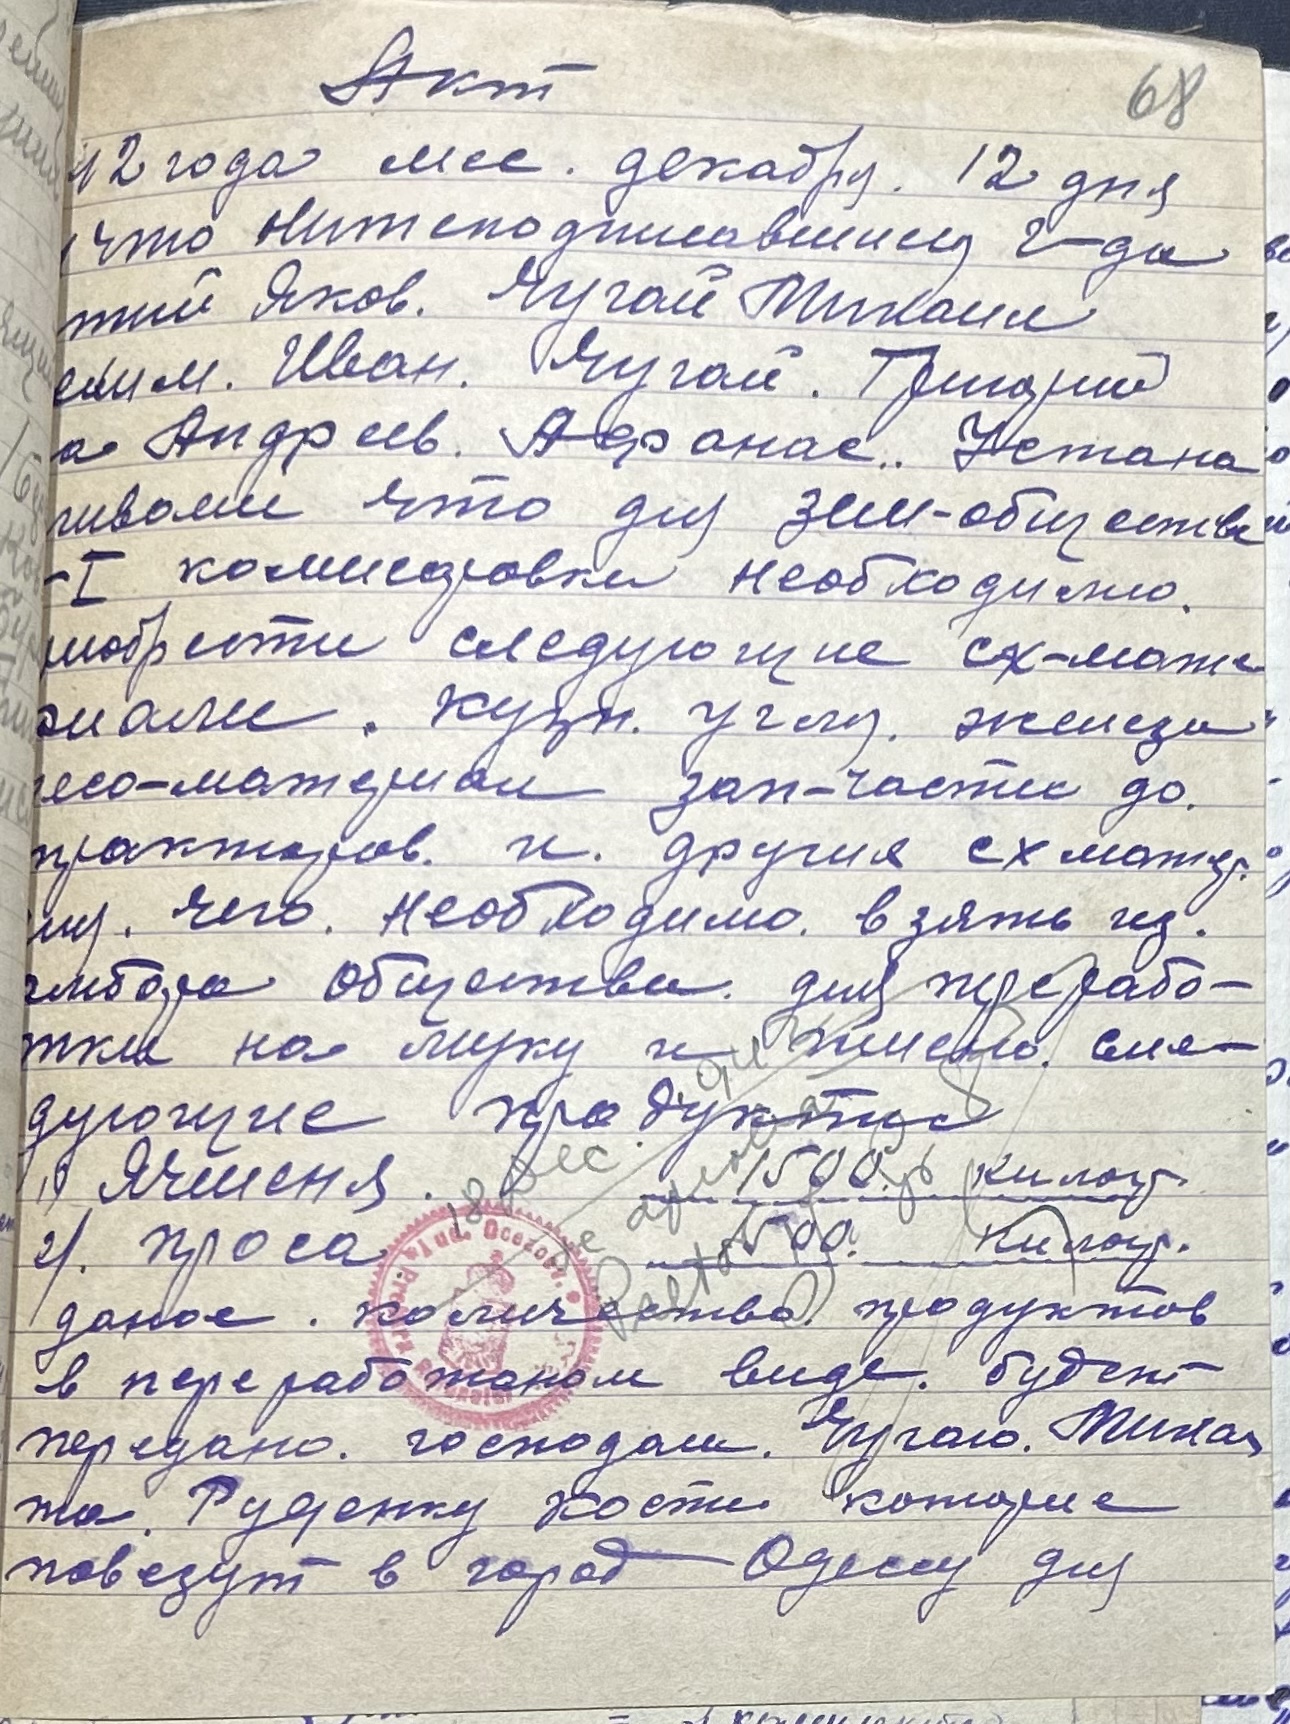 Акт
68
42 года мес. декабря. 12 дня
что нижеподписавшиеся г-да
жий Яков. Чугай Михаил
Иван. Чугай. Григорий
а Андреев. Афанас.. Устана
ливали что для зем-общества
-I комисаровка необходимо.
риобрести следующие сх-мате
риали. кузн. угля. железа
лесо-материал зап-части до.
тракторов. и. другия сх матер.
для. чего. необходимо. взять из.
амбара общества. для перерабо-
тки на муку и пшено. сле-
дующие продукти
1) Ячменя. 1500. килогр.
2). проса 500. килогр.
даное. количество. продуктов
в переработаном виде. будет
передано. господам. Чугаю. Михаи
Руденку Кости которие
повезут в город Одессу для